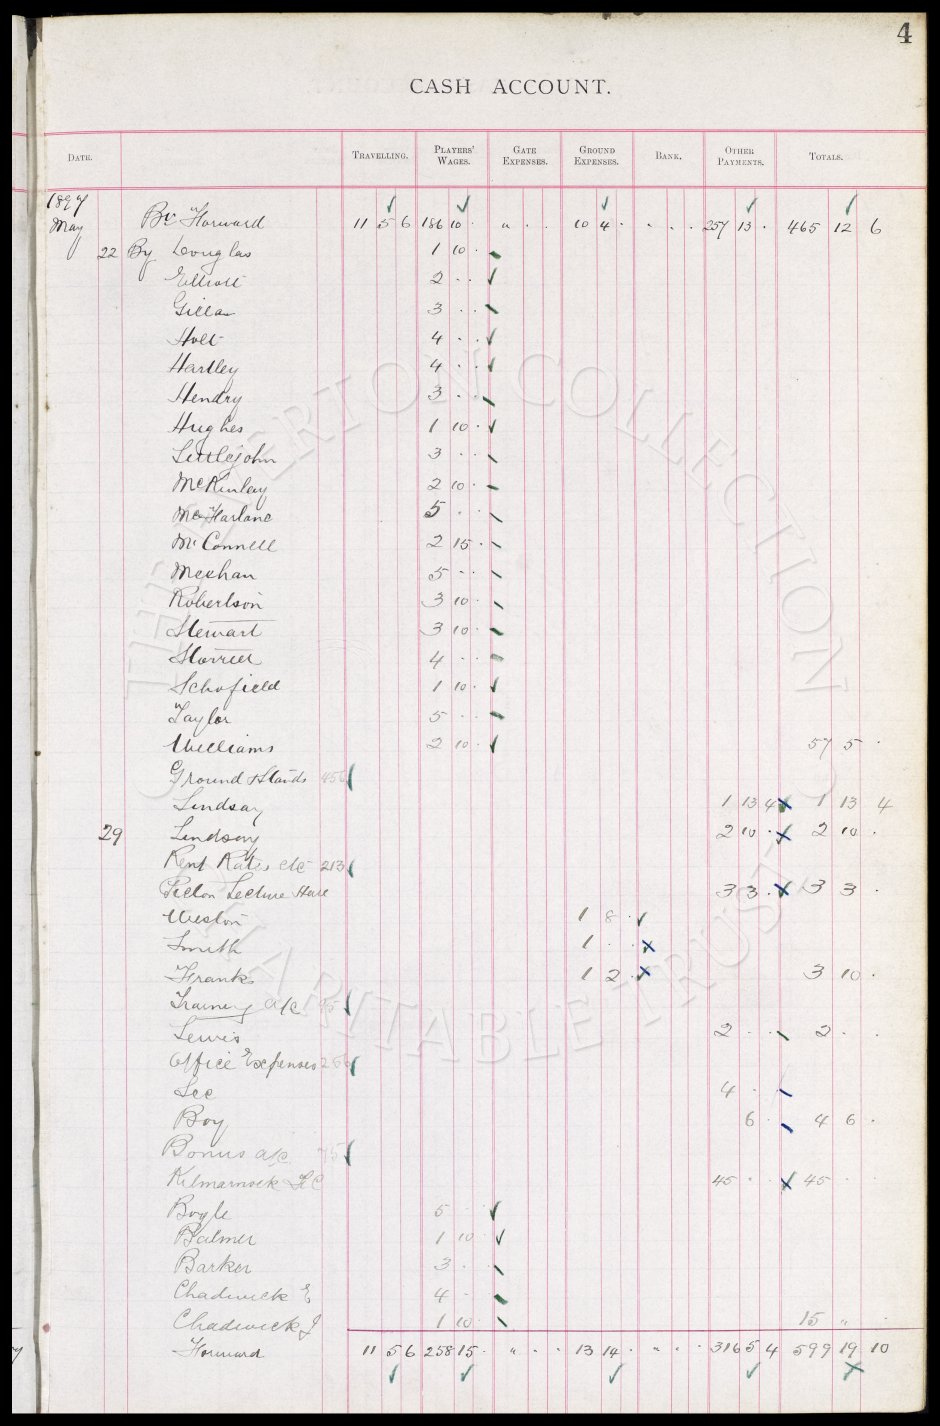 4
CASH ACCOUNT.
DATE. TRAVELLING. PLAYERS' WAGES. GATE EXPENSES. GROUND EXPENSES. BANK. OTHER PAYMENTS. TOTALS.
1897
May Bt Forward 11 5 6 186 10 . " . . 10 4 . " . . 257 13 . 465 12 6
22 By Douglas 1 10 .
Elliott 2 . .
Gillan 3 . .
Holt 4 . .
Hartley 4 . .
Hendry 3 . .
Hughes 1 10 .
Littlejohn 3 . .
McKinlay 2 10 .
McFarlane 5 . .
McConnell 2 15 .
Meehan 5 . .
Robertson 3 10 .
Stewart 3 10 .
Storrier 4 . .
Schofield 1 10 .
Taylor 5 . .
Williams 2 10 . 57 5 .
Ground & Stands 456
Lindsay 1 13 4 1 13 4
29 Lindsay 2 10 . 2 10 .
Rent Rates etc 213
Picton Lecture Hall 3 3 . 3 3 .
Weston 1 8 .
Smith 1 . .
Franks 1 2 . 3 10 .
Training a/c
Lewis 2 . . 2 . .
Office Expenses 266
Lee 4 .
Boy 6 . 4 6 .
Bonus a/c
Kilmarnock FC 45 . . 45 . .
Boyle 5 . .
Balmer 1 10 .
Barker 3 .
Chadwick E 4 .
Chadwick J 1 10 . 15 " .
Forward 11 5 6 258 15 . " . . 13 14 . " . . 316 5 4 599 19 10
THE EVERTON COLLECTION CHARITABLE TRUST